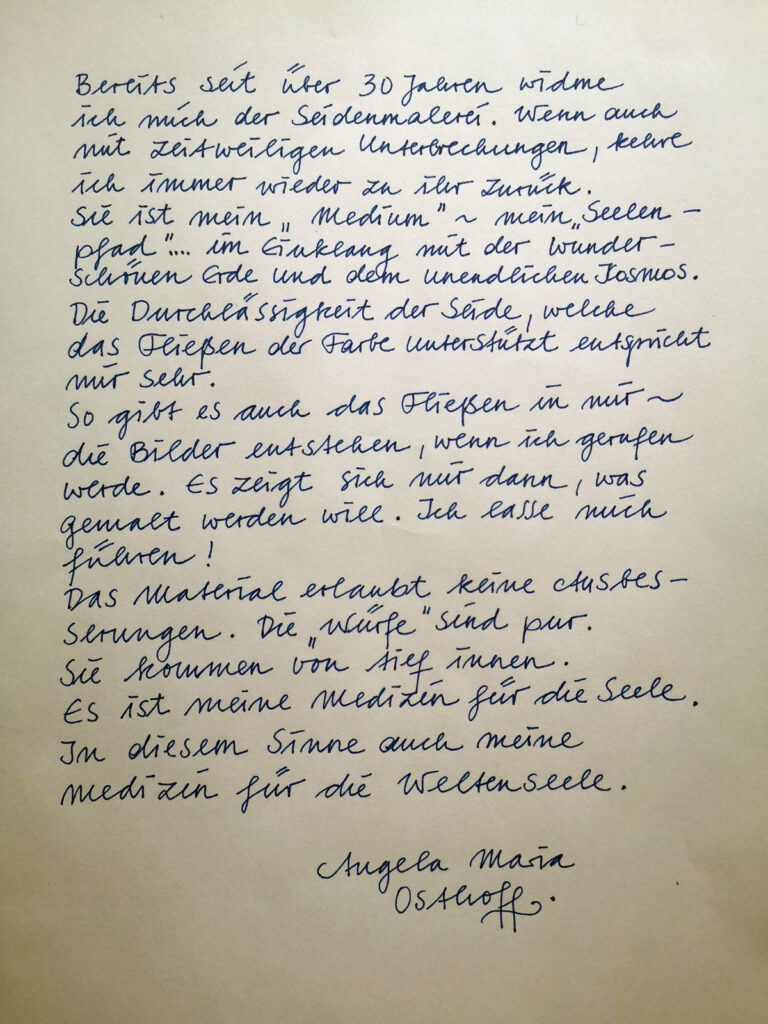 Bereits seit über 30 Jahren widme
ich mich der Seidenmalerei. Wenn auch
mit zeitweiligen Unterbrechungen, kehre
ich immer wieder zu ihr zurück.
Sie ist mein „Medium" ~ mein „Seelen-
pfad".... im Einklang mit der wunder-
schönen Erde und dem unendlichen Kosmos.
Die Durchlässigkeit der Seide, welche
das Fließen der Farbe unterstützt entspricht
mir sehr.
So gibt es auch das Fließen in mir ~
die Bilder entstehen, wenn ich gerufen
werde. Es zeigt sich mir dann, was
gemalt werden will. Ich lasse mich
führen!
Das Material erlaubt keine Ausbes-
serungen. Die „Würfe" sind pur.
Sie kommen von tief innen.
Es ist meine Medizin für die Seele.
In diesem Sinne auch meine
Medizin für die Weltenseele.
Angela Maria
Osthoff.